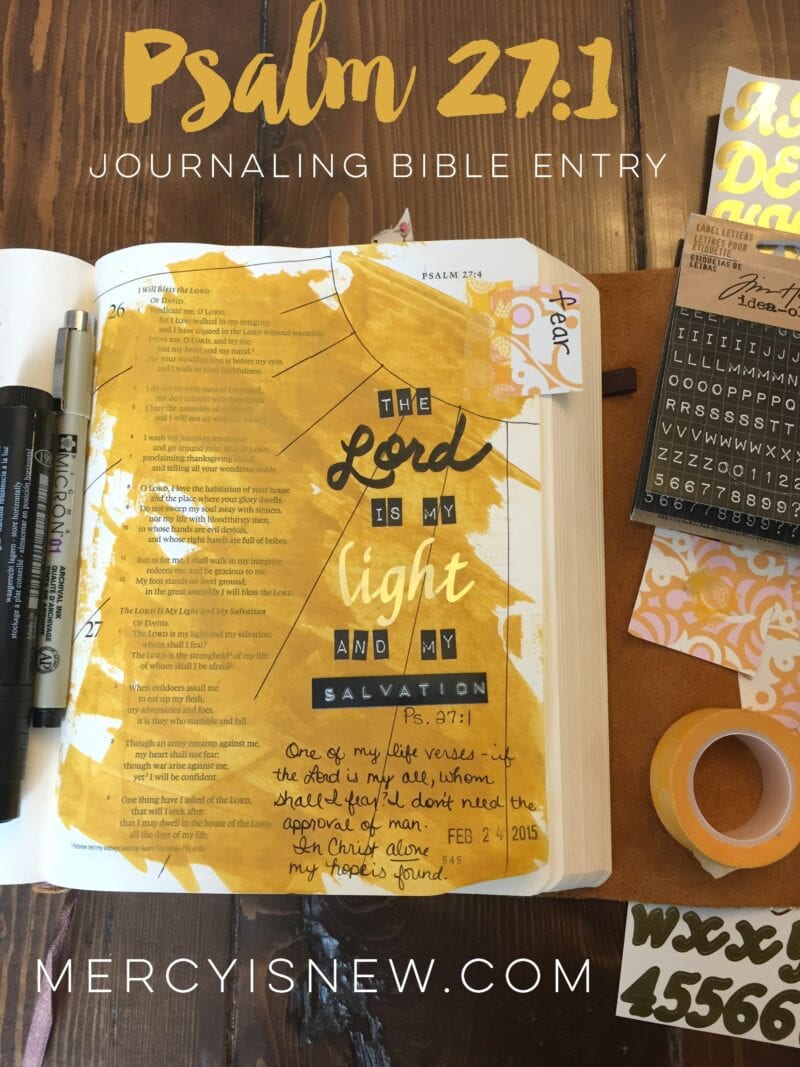 Psalm 27:1
JOURNALING BIBLE ENTRY
PSALM 27:4
fear
26
I Will Bless the LORD
OF DAVID.
Vindicate me, O LORD,
for I have walked in my integrity,
and I have trusted in the LORD without wavering.
Prove me, O LORD, and try me;
test my heart and my mind.
For your steadfast love is before my eyes,
and I walk in your faithfulness.
I do not sit with men of falsehood,
nor do I consort with hypocrites.
I hate the assembly of
and I will not sit with the
I wash my hands in innocence
and go around your altar, O LORD,
proclaiming thanksgiving
and telling all your wondrous deeds.
O LORD, I love the habitation of your house
and the place where your glory dwells.
Do not sweep my soul away with sinners,
nor my life with bloodthirsty men,
in whose hands are evil devices,
and whose right hands are full of bribes.
But as for me, I shall walk in my integrity;
redeem me, and be gracious to me.
My foot stands on level ground;
in the great assembly I will bless the LORD.
The LORD Is My Light and My Salvation
27
OF DAVID.
The LORD is my light and my salvation;
whom shall I fear?
The LORD is the stronghold of my life;
of whom shall I be afraid?
When evildoers assail me
to eat up my flesh,
my adversaries and foes,
it is they who stumble and fall.
Though an army encamp against me,
my heart shall not fear;
though war arise against me,
yet I will be confident.
One thing have I asked of the LORD,
that will I seek after:
that I may dwell in the house of the LORD
all the days of my life,
THE
Lord
IS MY
light
AND MY
SALVATION
Ps. 27:1
One of my life verses - if
the Lord is my all, whom
shall I fear? I don't need the
approval of man.
In Christ alone
my hope is found.
FEB 24 2015
545
MICRON 01
ARCHIVAL INK
QUALITÉ D'ARCHIVAGE
AP
waagerecht lagern - store horizontally
stockage à plat conseillé - almacenar en posición horizontal
LABEL LETTERS
LETTRES POUR
ÉTIQUETTE
ETIQUETAS DE
LETRAS
idea-o
IIIIIIJJJ
LLLLMMMMN
OOOOOPPPPQ
RRSSSSSTT
VVVWWWWXXX
ZZZZ00112
5667788991
wxxy
45566
MERCYISNEW.COM